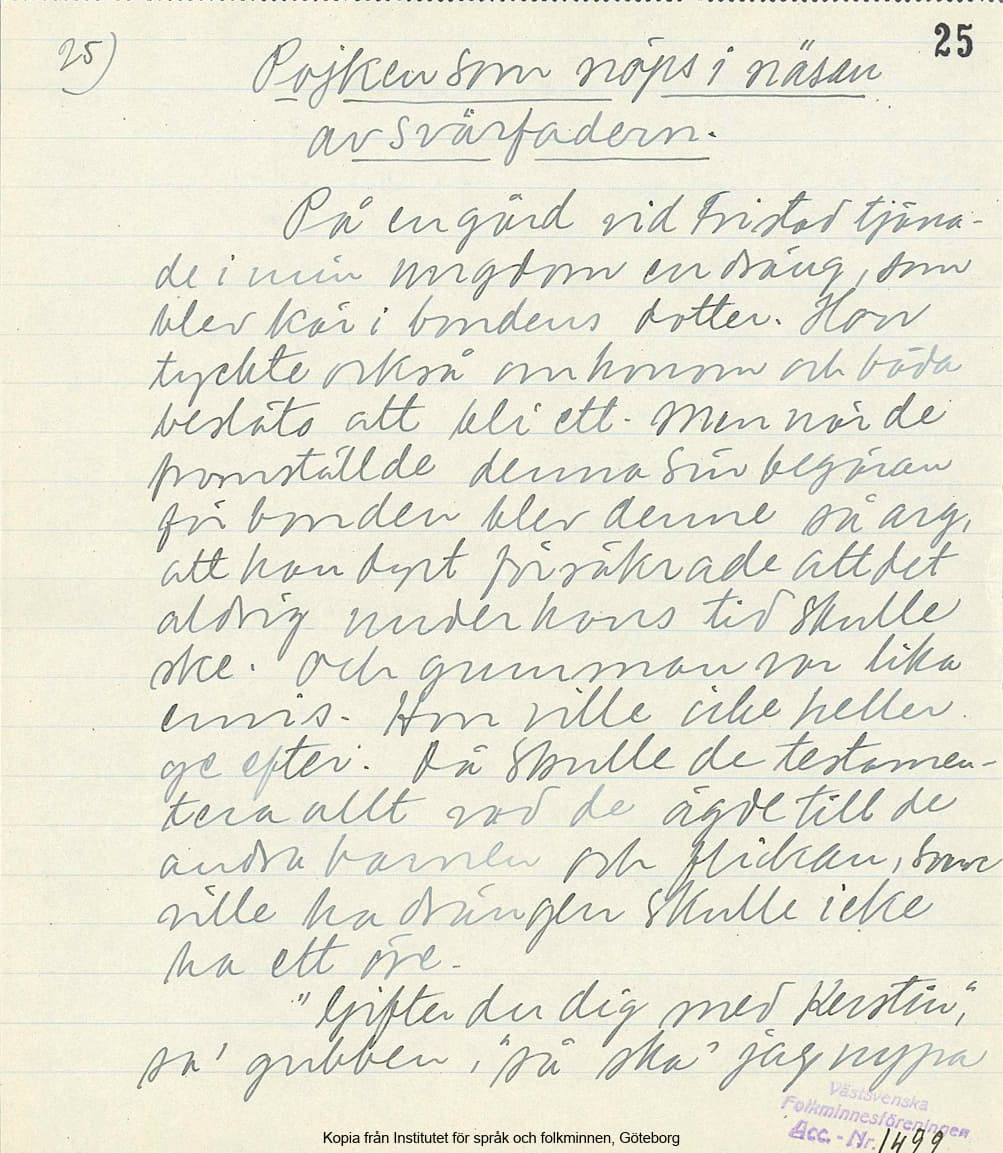 25) 25
Pojken som nöps i näsan
av svärfadern.
På en gård vid Fristad tjäna-
de i min ungdom en dräng, som
blev kär i bondens dotter. Hon
tyckte också om honom och båda
beslöto att bli ett. Men när de
framställde denna sin begäran
för bonden blev denne så arg,
att han dyrt försäkrade att det
aldrig under hans tid skulle
ske. Och gumman var lika
envis. Hon ville icke heller
ge efter. Då skulle de testamen-
tera allt vad de ägde till de
andra barnen och flickan, som
ville ha drängen skulle icke
ha ett öre.
"Gifter du dig med Kerstin",
sa' gubben, "så ska' jag nypa
Västsvenska
Folkminnesföreningen
Acc. - Nr. 1499
Kopia från Institutet för språk och folkminnen, Göteborg